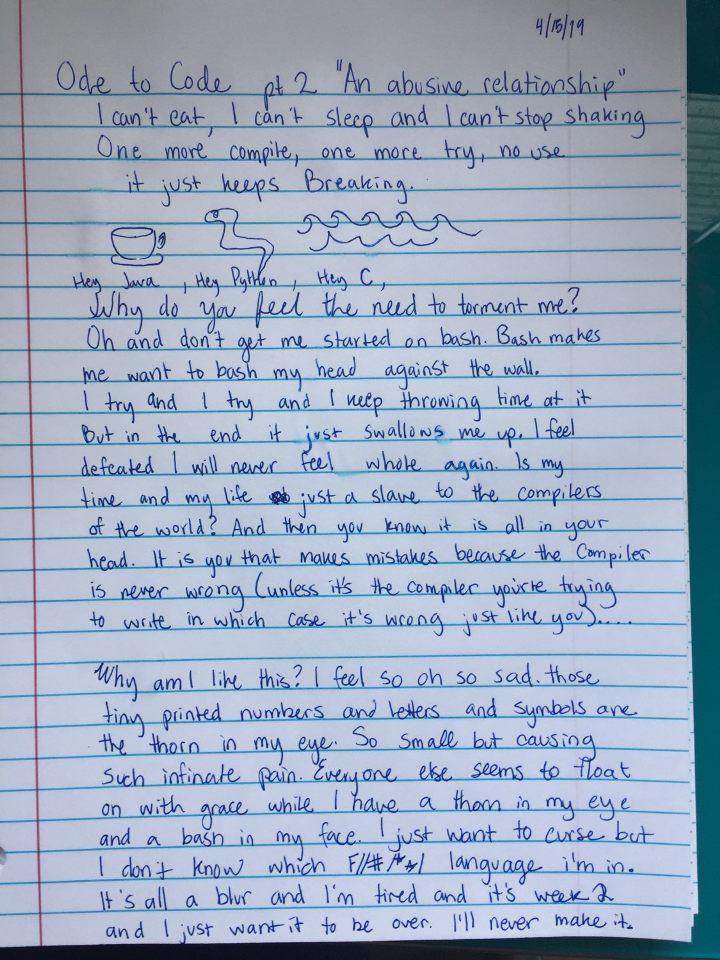 4/15/19
Ode to Code pt 2 "An abusive relationship"
I can't eat, I can't sleep and I can't stop shaking
One more compile, one more try, no use
it just keeps Breaking.
Hey Java, Hey Python, Hey C,
Why do you feel the need to torment me?
Oh and don't get me started on bash. Bash makes
me want to bash my head against the wall.
I try and I try and I keep throwing time at it
But in the end it just swallows me up. I feel
defeated I will never feel whole again. Is my
time and my life just a slave to the compilers
of the world? And then you know it is all in your
head. It is you that makes mistakes because the Compiler
is never wrong (unless it's the compiler you're trying
to write in which case it's wrong just like you)....
Why am I like this? I feel so oh so sad. those
tiny printed numbers and letters and symbols are
the thorn in my eye. So small but causing
such infinate pain. Everyone else seems to float
on with grace while I have a thorn in my eye
and a bash in my face. I just want to curse but
I don't know which F//#/**/ language i'm in.
It's all a blur and I'm tired and it's week 2
and I just want it to be over. I'll never make it.